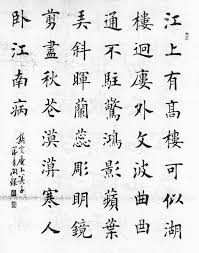 江上有高樓可似湖
樓迴廔外文波曲曲
通不駐驚鴻影蘋葉
弄斜暉蘭蕊彫明鏡
剪盡秋花漠漠寒人
臥江南病